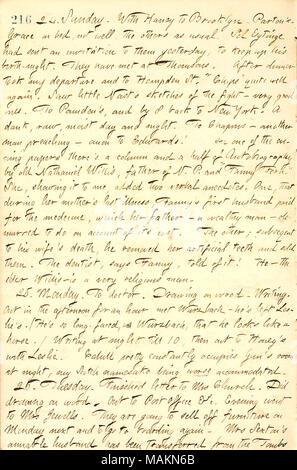 216
24. Sunday. With Haney to Brooklyn. Parton's.
Grace in bed, not well, the others as usual. Sol Eytinge
had sent an invitation to them yesterday, to keep up his
birth-night. They have met at Thomson's. After dinner
took my departure and to Hampden St. "Chips" quite well
again. Saw little Nast's sketches of the fight very good
ones. To and by 8 back to New York. A
dank, raw, moist day and night. To Chapin's another
man preaching anon to Edwards'. In one of the eve-
ning papers there's a column and a half of Autobiography
by old Nathaniel Willis, father of N. P. and Fanny Fern.
She, showing it to me, added two verbal anecdotes. One, that
during her mother's last illness Fanny's first husband paid
for the medicine, which her father a wealthy man de-
murred to do on account of its cost. The other; subsequent
to his wife's death, he removed her artificial teeth and sold
them. The dentist, says Fanny, told of it! He the
elder Willis is a very religious man.
25. Monday. To doctor. Drawing on wood. Writing.
Out in the afternoon for an hour met Wurzbach he's left Les-
lie's. He's so long-faced, is Wurzbach, that he looks like a
horse. Writing at night till 10, then out to Haney's
with Leslie. Cahill pretty constantly occupies my room
at night, my being worse accommodated.
26. Tuesday. Finished letter to Mrs Church. Did
drawing on wood. Out to Post office &c. Evening went
to Mrs Jewell's. They are going to sell off furniture on
Monday next and to boarding again. Mrs Sexton's
amiable husband has been transferred from the Tombs
alamy
Image ID: MAKN6B
www.alamy.com